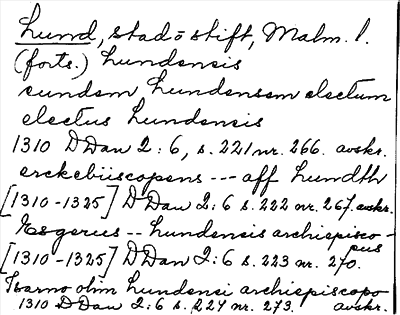 Lund, stad o stift, Malm. l.
(forts.) Lundensis
eundem Lundensem electum
electus Lundensis
1310 D Dan 2:6, s. 221 nr. 266. avskr.
erckebiiscopens --- aff Lundth
[1310-1325] D Dan 2:6 s. 222 nr. 267. avskr.
Esgerus -- Lundensis archiepisco-
pus
[1310-1325] D Dan 2:6 s. 223 nr. 270.
Isarno olim Lundensi archiepiscopo
1310 D Dan 2:6 s. 224 nr. 273. avskr.